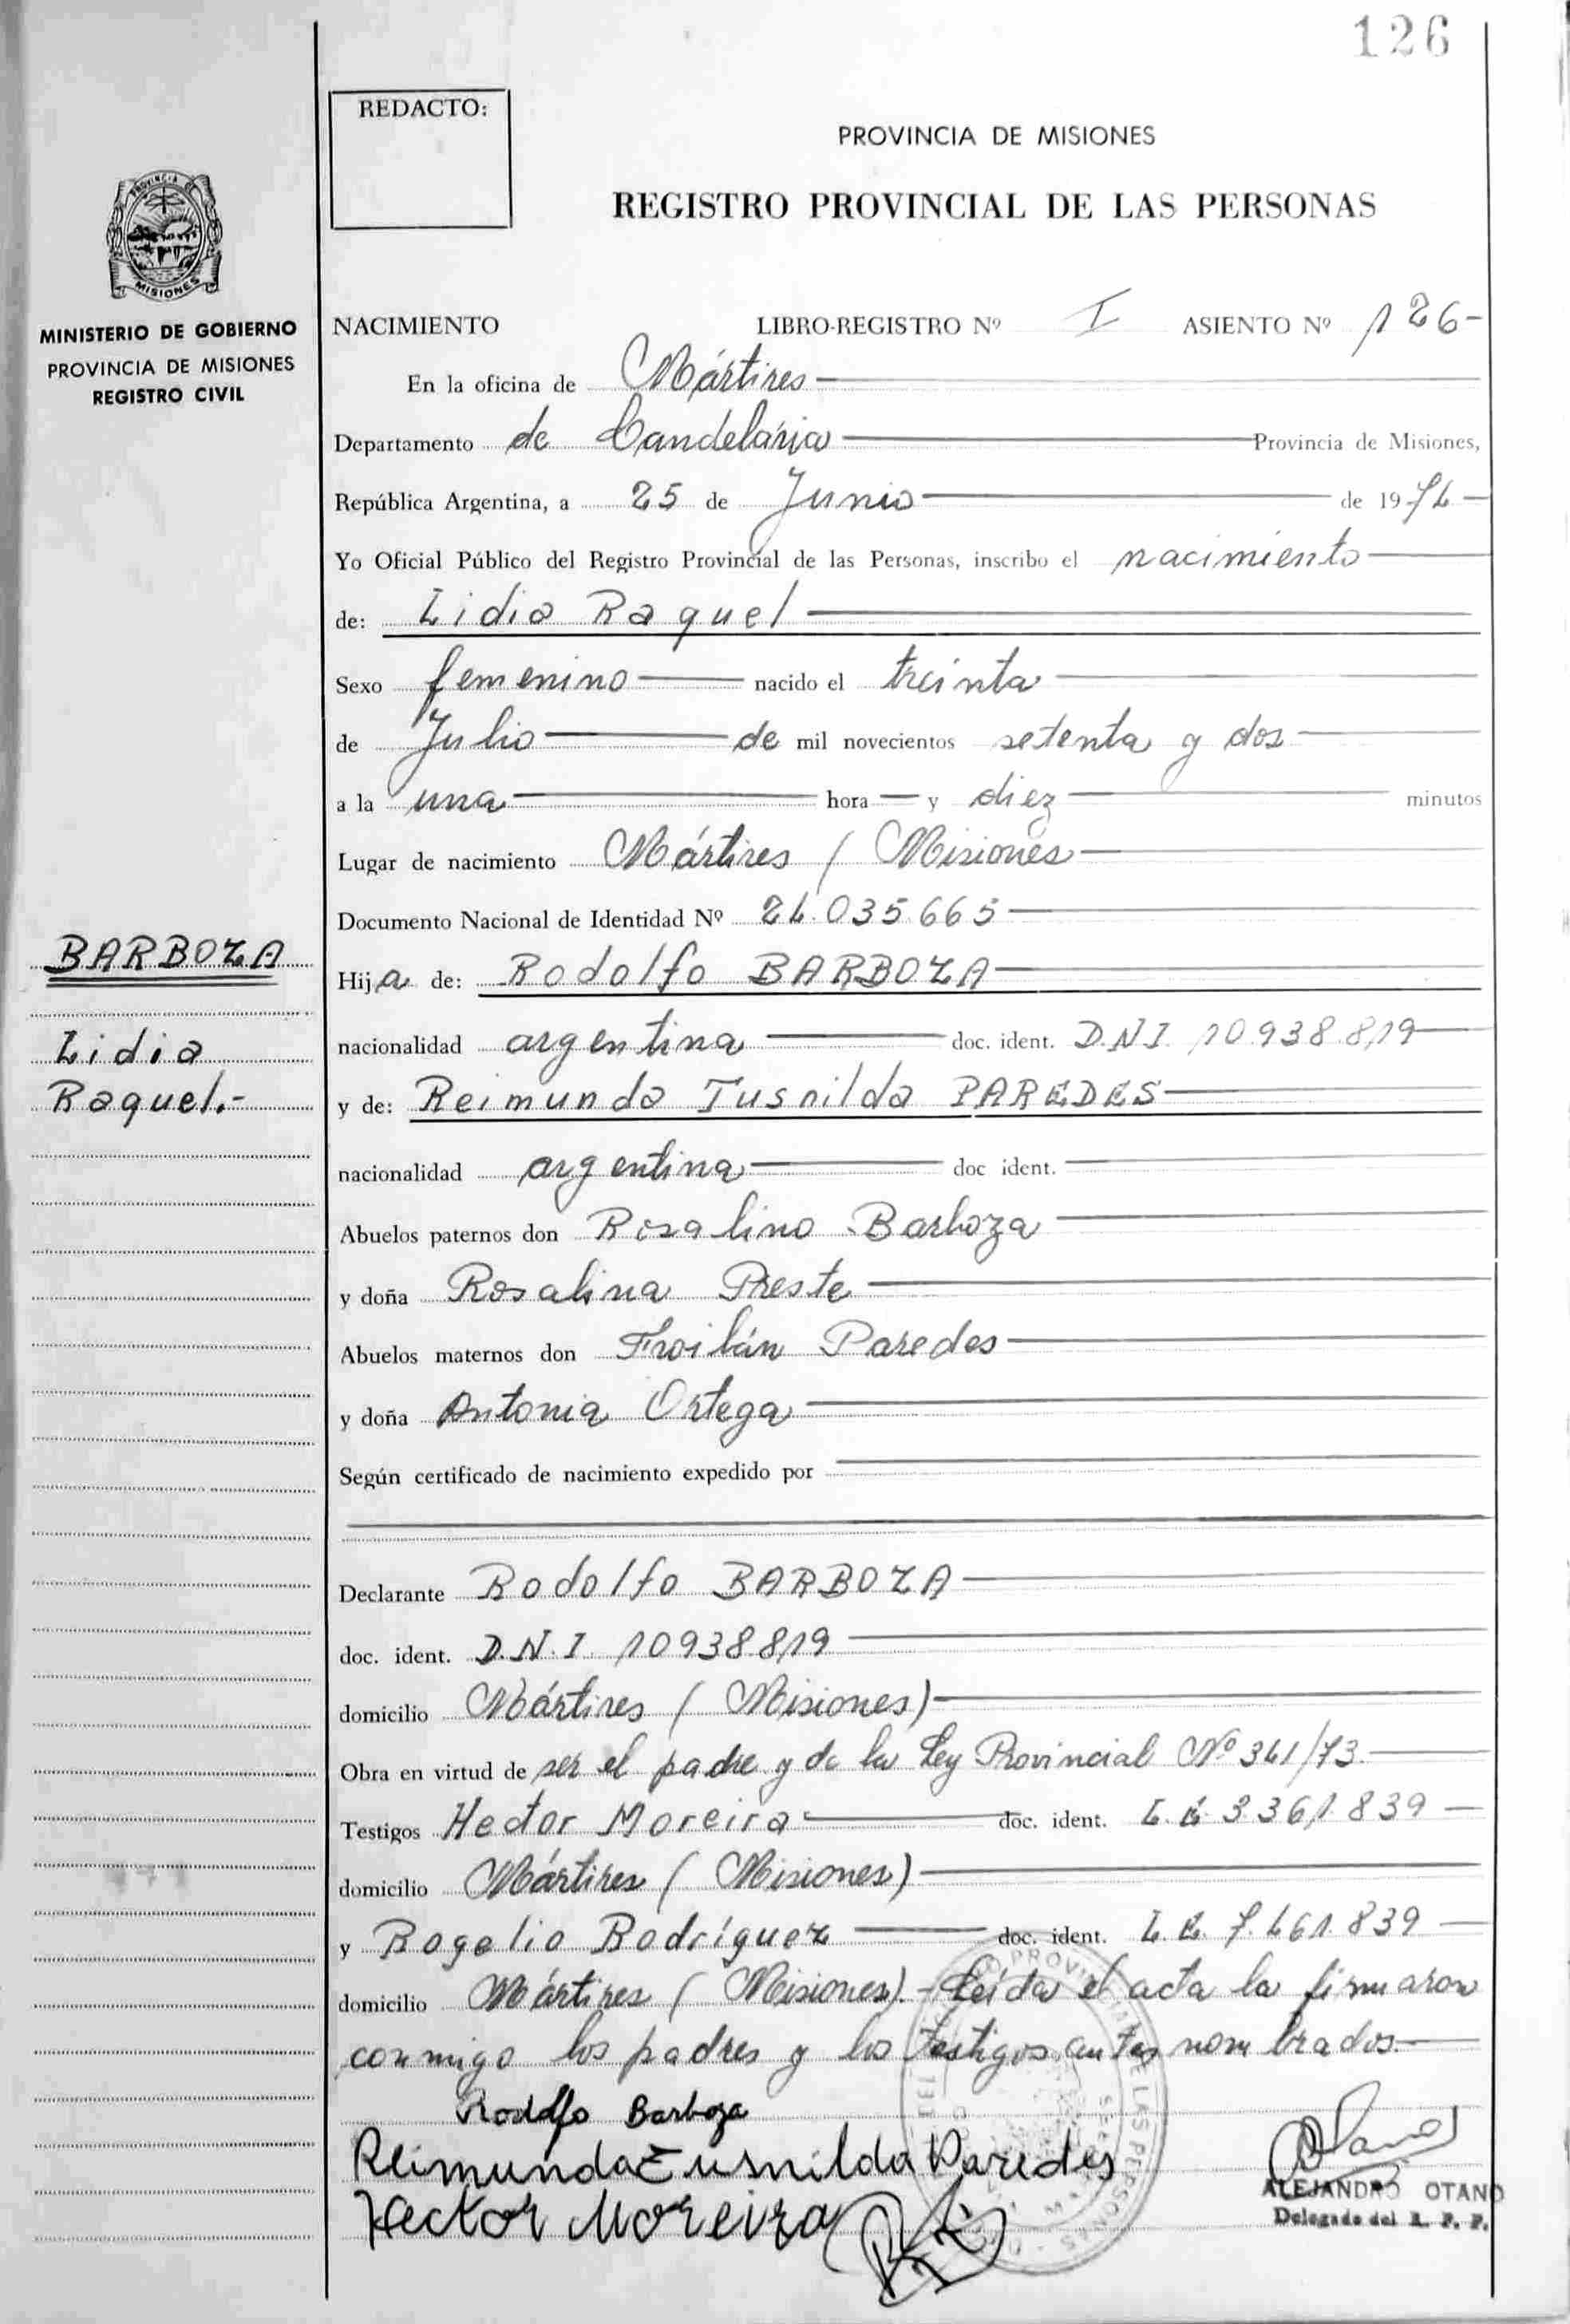 126
REDACTO:
PROVINCIA DE MISIONES
REGISTRO PROVINCIAL DE LAS PERSONAS
PROVINCIA DE
MISIONES
MINISTERIO DE GOBIERNO
PROVINCIA DE MISIONES
REGISTRO CIVIL
NACIMIENTO LIBRO-REGISTRO Nº I ASIENTO Nº 126-
En la oficina de Mártires
Departamento de Candelária Provincia de Misiones,
República Argentina, a 25 de Junio de 1974
Yo Oficial Público del Registro Provincial de las Personas, inscribo el nacimiento
de: Lidia Raquel
Sexo femenino nacido el treinta
de Julio de mil novecientos setenta y dos
a la una hora y diez minutos
Lugar de nacimiento Mártires / Misiones
Documento Nacional de Identidad Nº 24.035.665
BARBOZA
Lidia
Raquel.-
Hija de: Rodolfo BARBOZA
nacionalidad argentina doc. ident. D.N.I. 10.938.819
y de: Reimunda Tusnilda PAREDES
nacionalidad argentina doc ident.
Abuelos paternos don Rosalino Barboza
y doña Rosalina Preste
Abuelos maternos don Froilán Paredes
y doña Antonia Ortega
Según certificado de nacimiento expedido por
Declarante Rodolfo BARBOZA
doc. ident. D.N.I. 10938.819
domicilio Mártires (Misiones)
Obra en virtud de ser el padre y de la Ley Provincial Nº 341/73.
Testigos Hector Moreira doc. ident. L.E. 3.361.839
domicilio Mártires (Misiones)
y Rogelio Rodríguez doc. ident. L.E. 7.461.839
domicilio Mártires (Misiones).- Leída el acta la firmaron
conmigo los padres y los testigos antes nombrados.
Rodolfo Barboza
Reimunda Tusnilda Paredes
Hector Moreira
ALEJANDRO OTANO
Delegado del R. P. P.